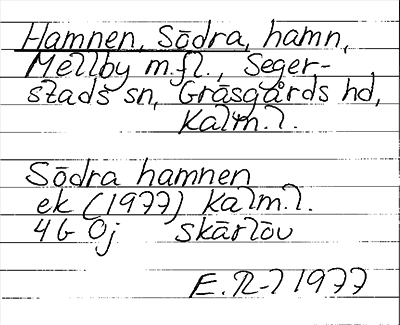 Hamnen, Södra, hamn,
Mellby m.fl., Seger-
stads sn, Gräsgårds hd,
Kalm.l.
Södra hamnen
ek (1977) Kalm.l.
4G Oj skärlöv
E. R-l 1977